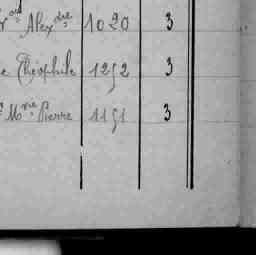 Alexdre 1020 3
e Théophile 1252 3
Mme Pierre 1151 3